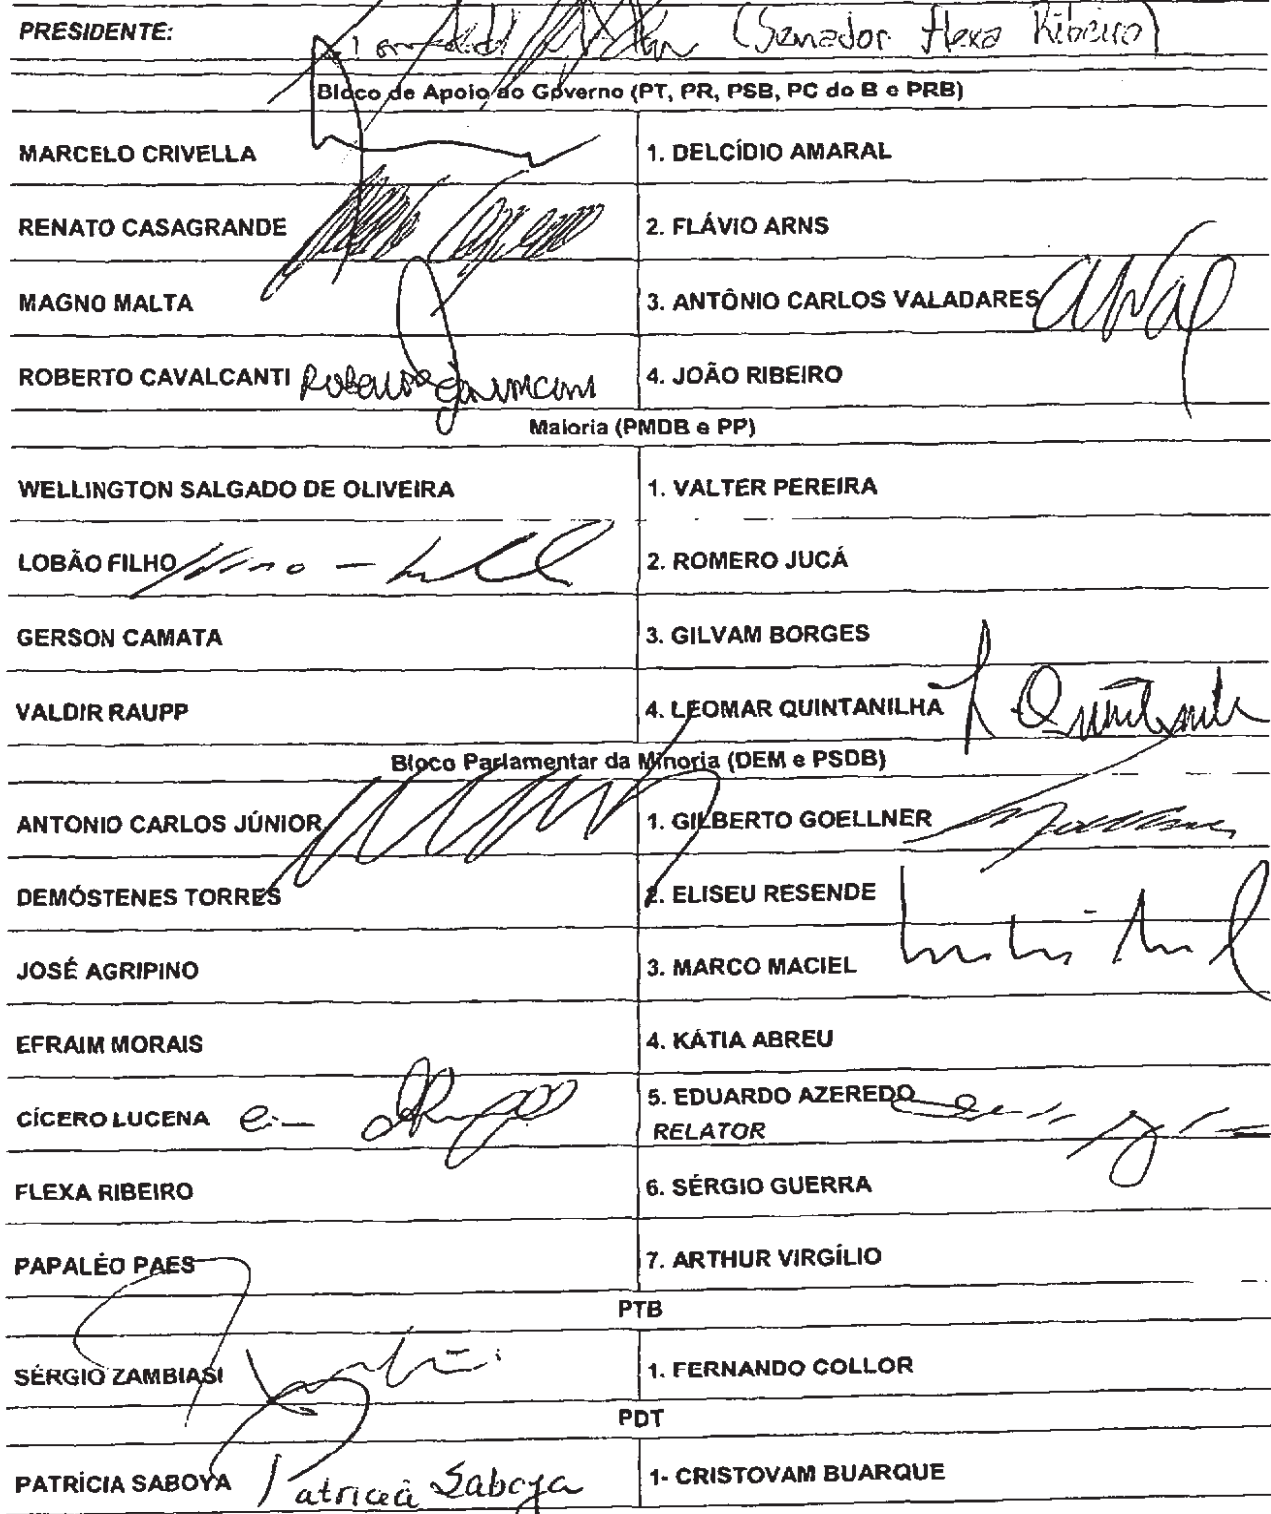 PRESIDENTE: (Senador Flexa Ribeiro)
Bloco de Apoio ao Governo (PT, PR, PSB, PC do B e PRB)
MARCELO CRIVELLA 1. DELCÍDIO AMARAL
RENATO CASAGRANDE 2. FLÁVIO ARNS
MAGNO MALTA 3. ANTÔNIO CARLOS VALADARES
ROBERTO CAVALCANTI 4. JOÃO RIBEIRO
Maioria (PMDB e PP)
WELLINGTON SALGADO DE OLIVEIRA 1. VALTER PEREIRA
LOBÃO FILHO 2. ROMERO JUCÁ
GERSON CAMATA 3. GILVAM BORGES
VALDIR RAUPP 4. LEOMAR QUINTANILHA
Bloco Parlamentar da Minoria (DEM e PSDB)
ANTONIO CARLOS JÚNIOR 1. GILBERTO GOELLNER
DEMÓSTENES TORRES 2. ELISEU RESENDE
JOSÉ AGRIPINO 3. MARCO MACIEL
EFRAIM MORAIS 4. KÁTIA ABREU
CÍCERO LUCENA 5. EDUARDO AZEREDO
RELATOR
FLEXA RIBEIRO 6. SÉRGIO GUERRA
PAPALÉO PAES 7. ARTHUR VIRGÍLIO
PTB
SÉRGIO ZAMBIASI 1. FERNANDO COLLOR
PDT
PATRÍCIA SABOYA Patrícia Saboya 1- CRISTOVAM BUARQUE